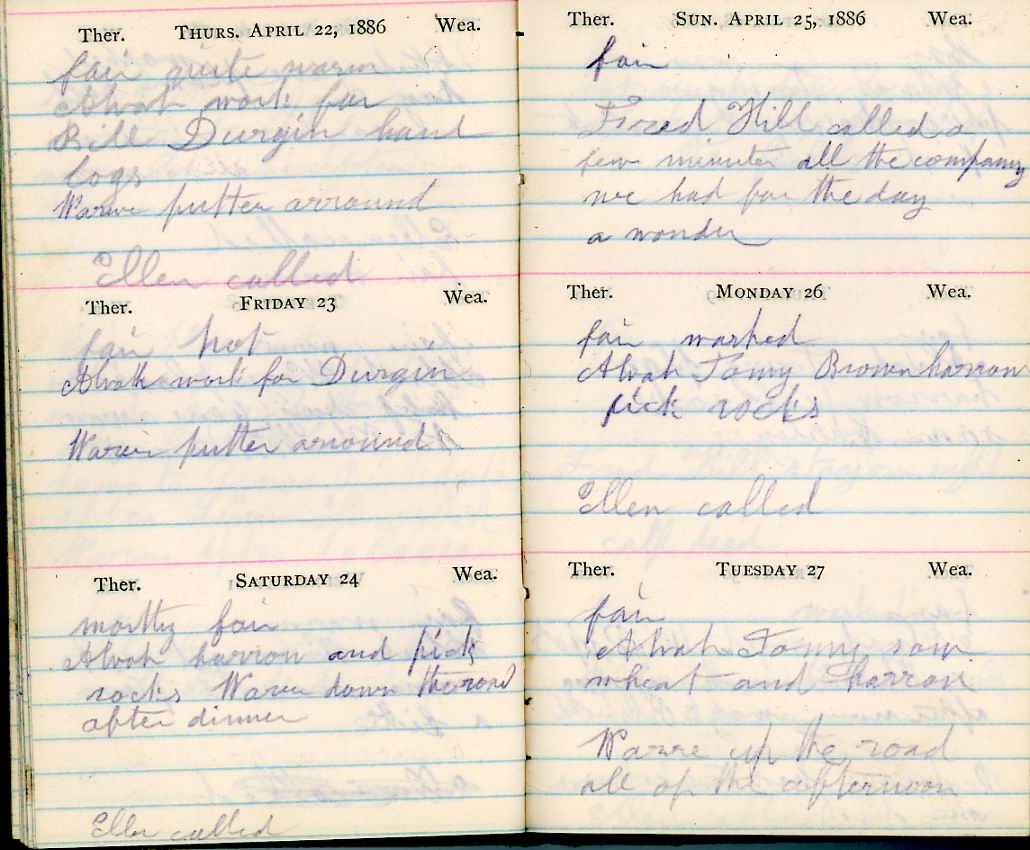 Ther. THURS. APRIL 22, 1886 Wea.
fair quite warm
Alvah work for
Bill Durgin haul
logs
Warne putter arround
Ellen called
Ther. FRIDAY 23 Wea.
fair hot
Alvah work for Durgin
Warne putter arround
Ther. SATURDAY 24 Wea.
mostly fair
Alvah harrow and pick
rocks Warne down the road
after dinner
Ellen called
Ther. SUN. APRIL 25, 1886 Wea.
fair
Fred Hill called a
few minutes all the company
we had for the day
a wonder
Ther. MONDAY 26 Wea.
fair washed
Alvah Tomy Brown harrow
pick rocks
Ellen called
Ther. TUESDAY 27 Wea.
fair
Alvah Tomy sow
wheat and harrow
Warne up the road
all of the afternoon